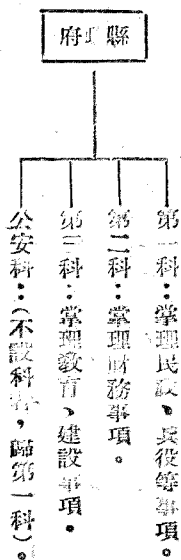 縣政府
第一科：掌理民政、兵役等事項。
第二科：掌理財務事項。
第三科：掌理教育、建設事項。
公安科：（不設科，歸第一科）。